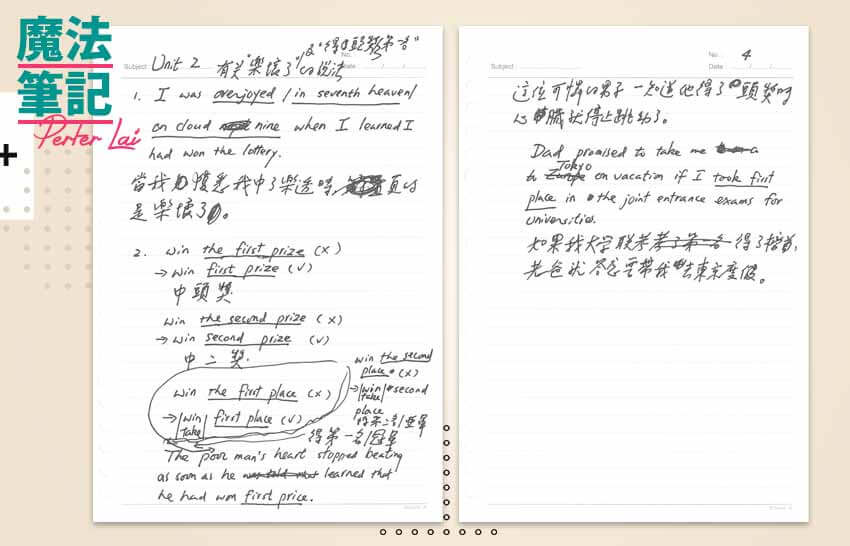 魔法
筆記
Perter Lai
Subject Unit 2 有关"樂壞了"的说法
及"得頭獎第一名"
No.
Date / /
1. I was overjoyed / in seventh heaven/
on cloud nine when I learned I
had won the lottery.
當我
是樂壞了。
2. win the first prize (×)
→ win first prize (√)
中頭獎.
win the second prize (×)
→ win second prize (√)
中二獎.
win the second
place (×)
→ |win
take| second
place
得第二名/亞軍
win the first place (×)
→ |win
take| first place (√)
得第一名/冠軍
The poor man's heart stopped beating
as soon as he learned that
he had won first price.
Subject
No. 4
Date / /
这位可憐的男子一知道他得了頭獎時
心臟就停止跳动了。
Dad promised to take me
to Tokyo on vacation if I took first
place in the joint entrance exams for
universities.
如果我大学联考得了榜首,
老爸就答应要带我去東京度假。